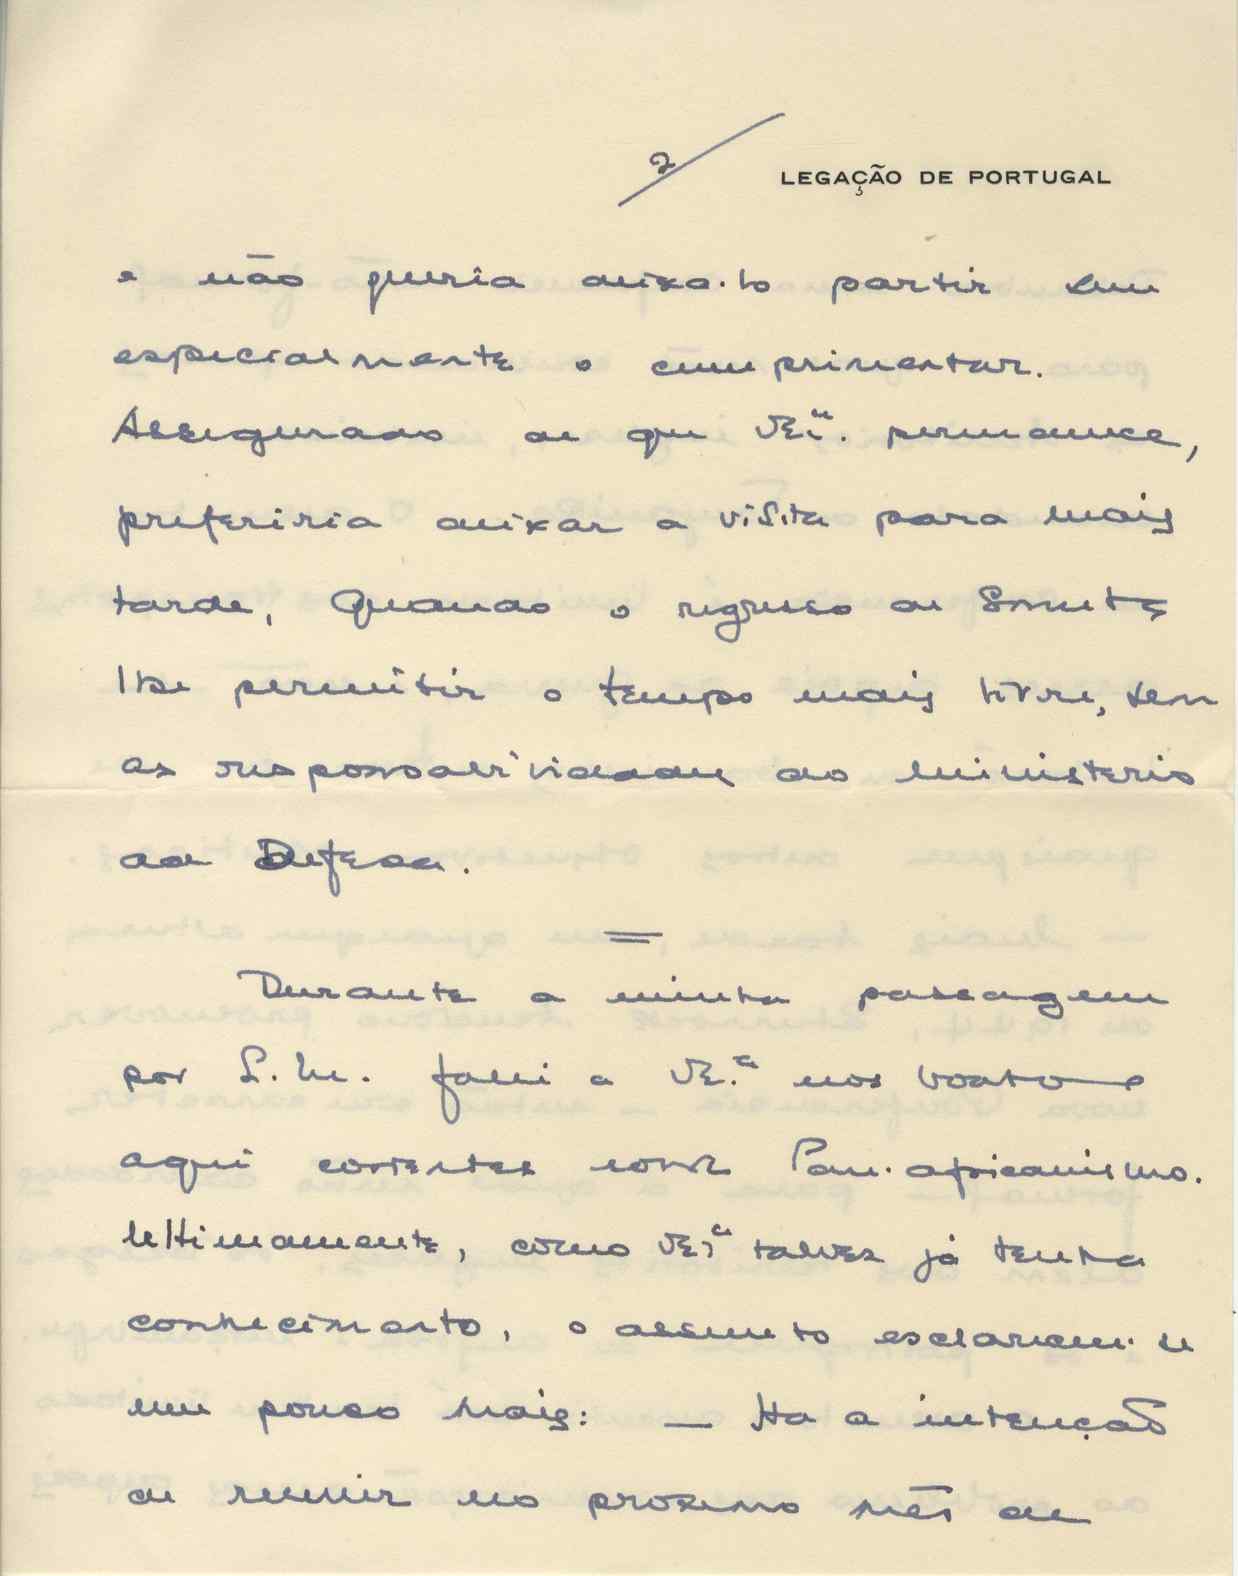 2/
LEGAÇÃO DE PORTUGAL
e não queria deixa-lo partir sem
especialmente o cumprimentar.
Assegurado de que VEx.ª permanece,
preferiria deixar a visita para mais
tarde, quando o regresso de Smuts
lhe permitir o tempo mais livre, sem
as responsabilidades do Ministerio
da Defesa.
=
Durante a minha passagem
por L.M. falei a VE.ª nos boatos
aqui correntes sobre Pan-africanismo.
Ultimamente, como VEx.ª talvez já tenha
conhecimento, o assunto esclareceu-se
um pouco mais: — Ha a intenção
de reunir no proximo mês de